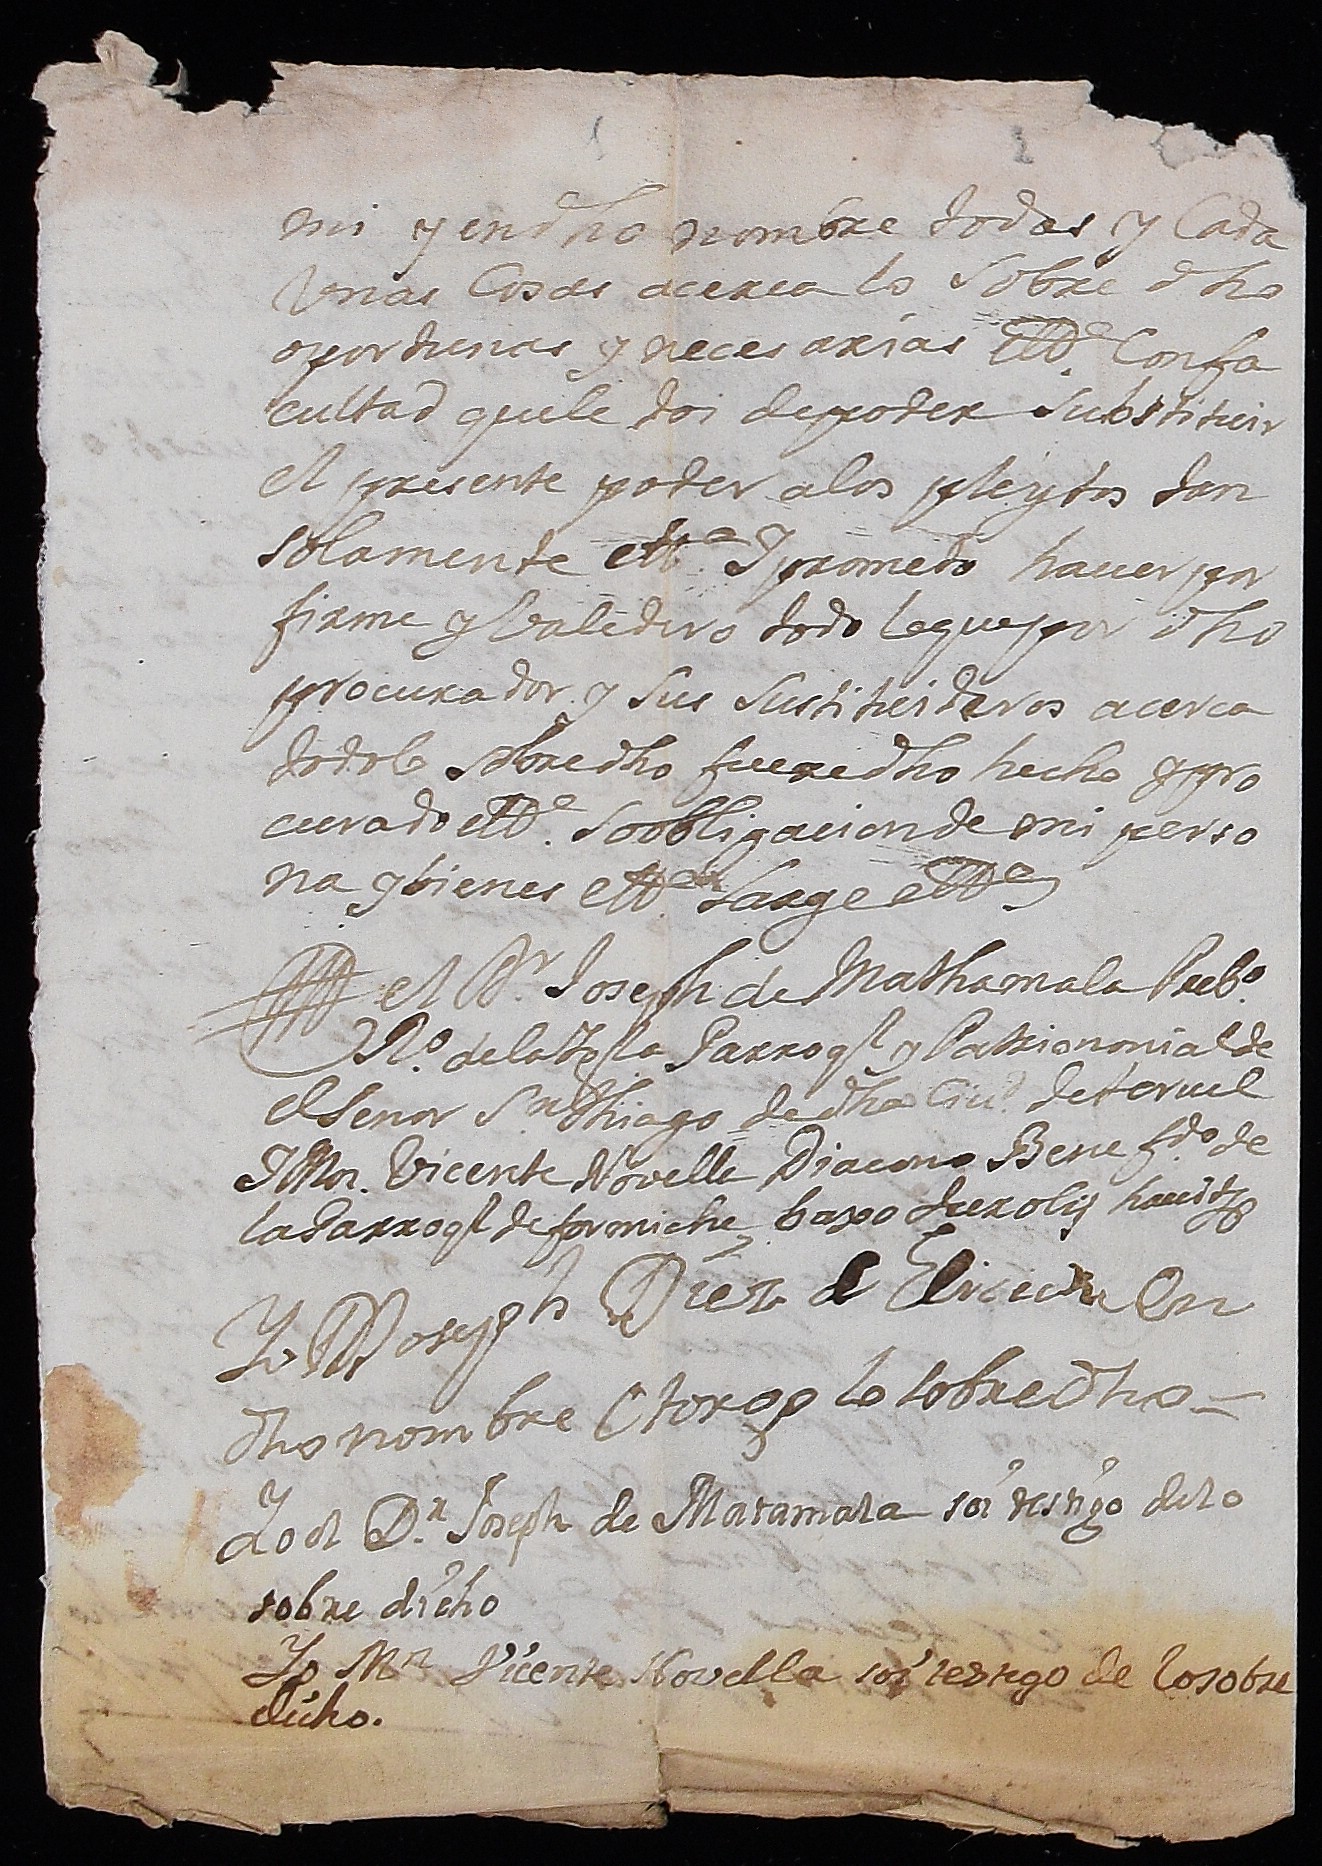 mi y en dho nombre todas y Cada
Unas Cosas acerca lo Sobre dho
oportunas y necesarias ettª. Con fa
cultad que le doi de poder Substituir
el presente poder a los pleytos tan
solamente ettª. Y prometo hauer por
firme y Valedero todo lo que por dho
procurador y sus sustituideros acerca
todo lo sobre dho fuere dho hecho y pro
curado ettª. So obligacion de mi perso
na y bienes ettª. Large ettª
el Dr. Joseph de Mathamala Prebº.
Rº. de la Yglª Parroql y Patrimonial de
el Senor Santhiago de dha Ciud. de teruel
Y Mn. Vicente Novella Diacono Benefdº. de
la Parroql de formiche baxo
Yo Dn Joseph Diez de En
dho nombre Otorgo lo sobredho
Yo el D.r Joseph de Matamala soi testigo de lo
sobre dicho
Yo Mn Vicente Novella soi testigo de lo sobre
dicho.